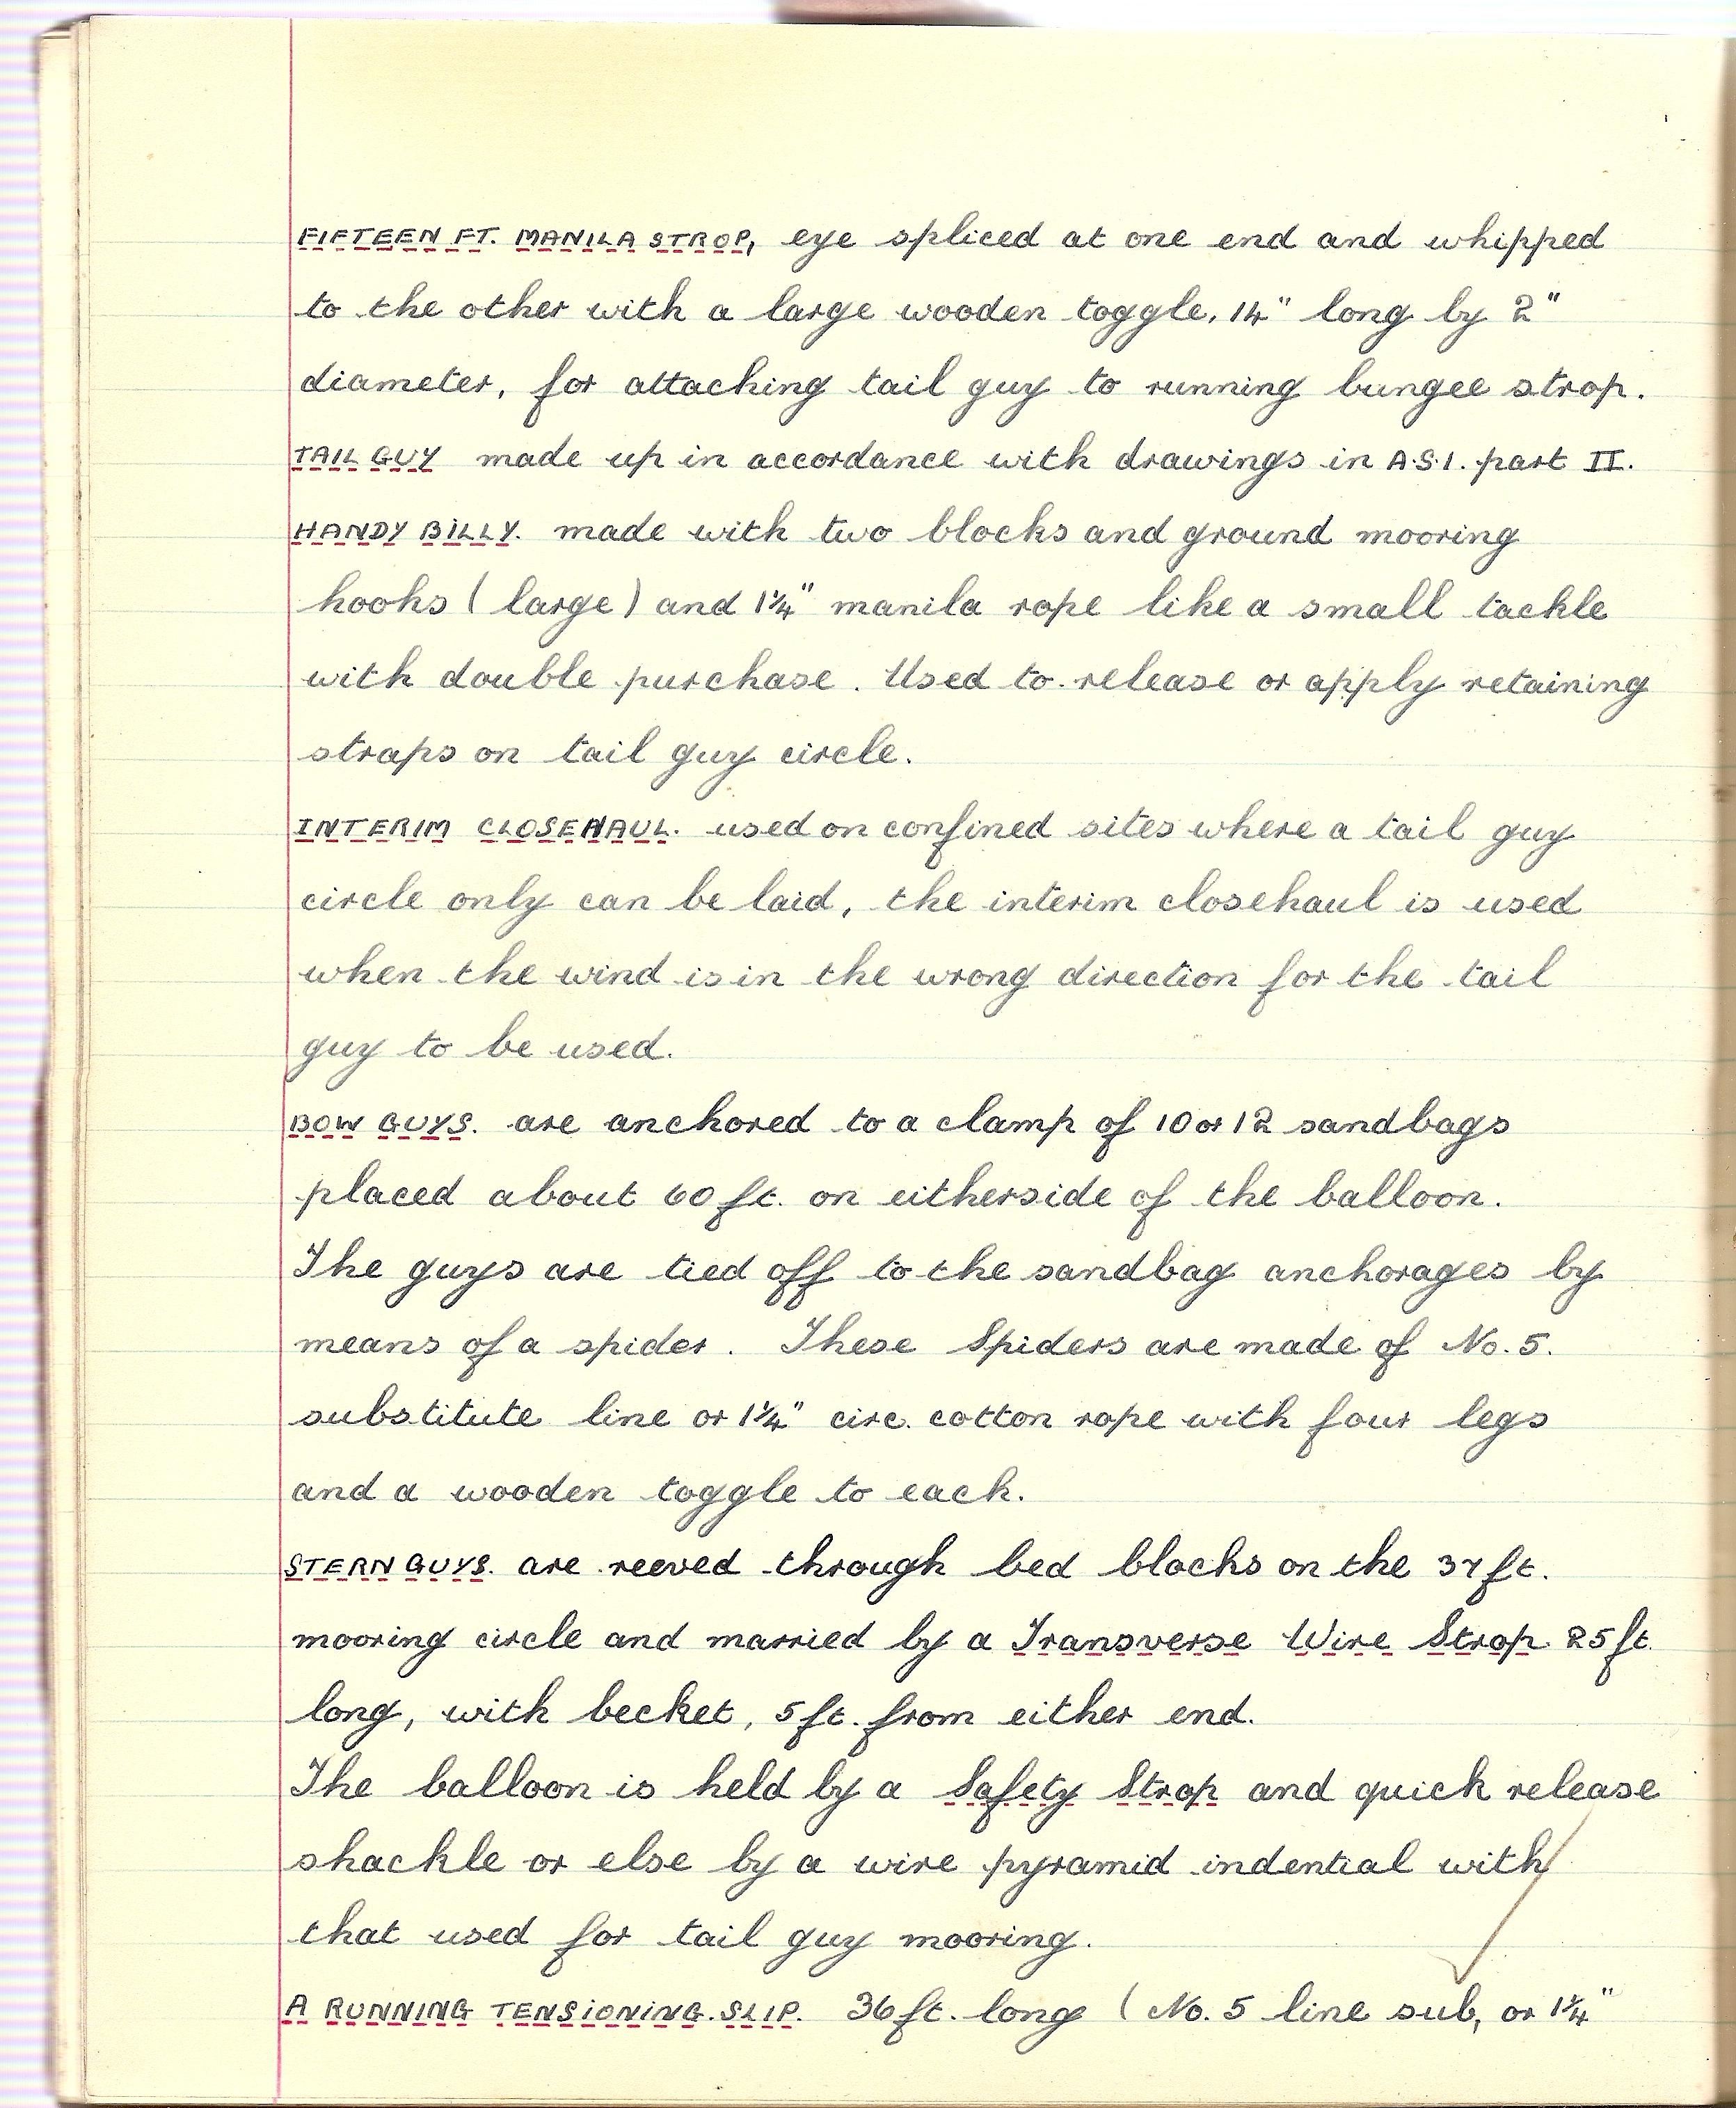 FIFTEEN FT. MANILA STROP, eye spliced at one end and whipped
to the other with a large wooden toggle, 14" long by 2"
diameter, for attaching tail guy to running bungee strop.
TAIL GUY made up in accordance with drawings in A.S.I. part II.
HANDY BILLY. made with two blocks and ground mooring
hooks (large) and 1¼" manila rope like a small tackle
with double purchase. Used to release or apply retaining
straps on tail guy circle.
INTERIM CLOSEHAUL. used on confined sites where a tail guy
circle only can be laid, the interim closehaul is used
when the wind is in the wrong direction for the tail
guy to be used.
BOW GUYS. are anchored to a clamp of 10 or 12 sandbags
placed about 60 ft. on eitherside of the balloon.
The guys are tied off to the sandbag anchorages by
means of a spider. These Spiders are made of No. 5.
substitute line or 1¼" circ. cotton rope with four legs
and a wooden toggle to each.
STERN GUYS. are reeved through bed blocks on the 37 ft.
mooring circle and married by a Transverse Wire Strop 25 ft.
long, with becket, 5 ft. from either end.
The balloon is held by a Safety Strop and quick release
shackle or else by a wire pyramid indential with
that used for tail guy mooring.
A RUNNING TENSIONING SLIP. 36 ft. long (No. 5 line sub, or 1¼"